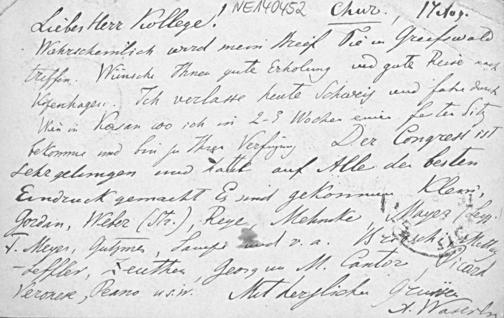 NE140452
Chur, 17 Aug.
Lieber Herr Kollege!
Wahrscheinlich wird mein Brief Sie in Greifswald
treffen. Wünsche Ihnen gute Erholung und gute Reise nach
Kopenhagen. Ich verlasse heute Schweiz und fahre durch
Wien in Kasan wo ich in 2-3 Wochen einen festen Sitz
bekomme und bin zu Ihrer Verfügung. Der Congress ist
sehr gelungen und hatte auf Alle den besten
Eindruck gemacht. Es sind gekommen Klein,
Gordan, Weber (Str.), Reye, Mehmke, Mayer
F. Meyer, Gutzmer, und v. a. Brioschi,
-Leffler, Zeuthen, Georg u. M. Cantor, Picard
Veronese, Peano u.s.w. Mit herzlichen Grüssen
A. Wassiliev